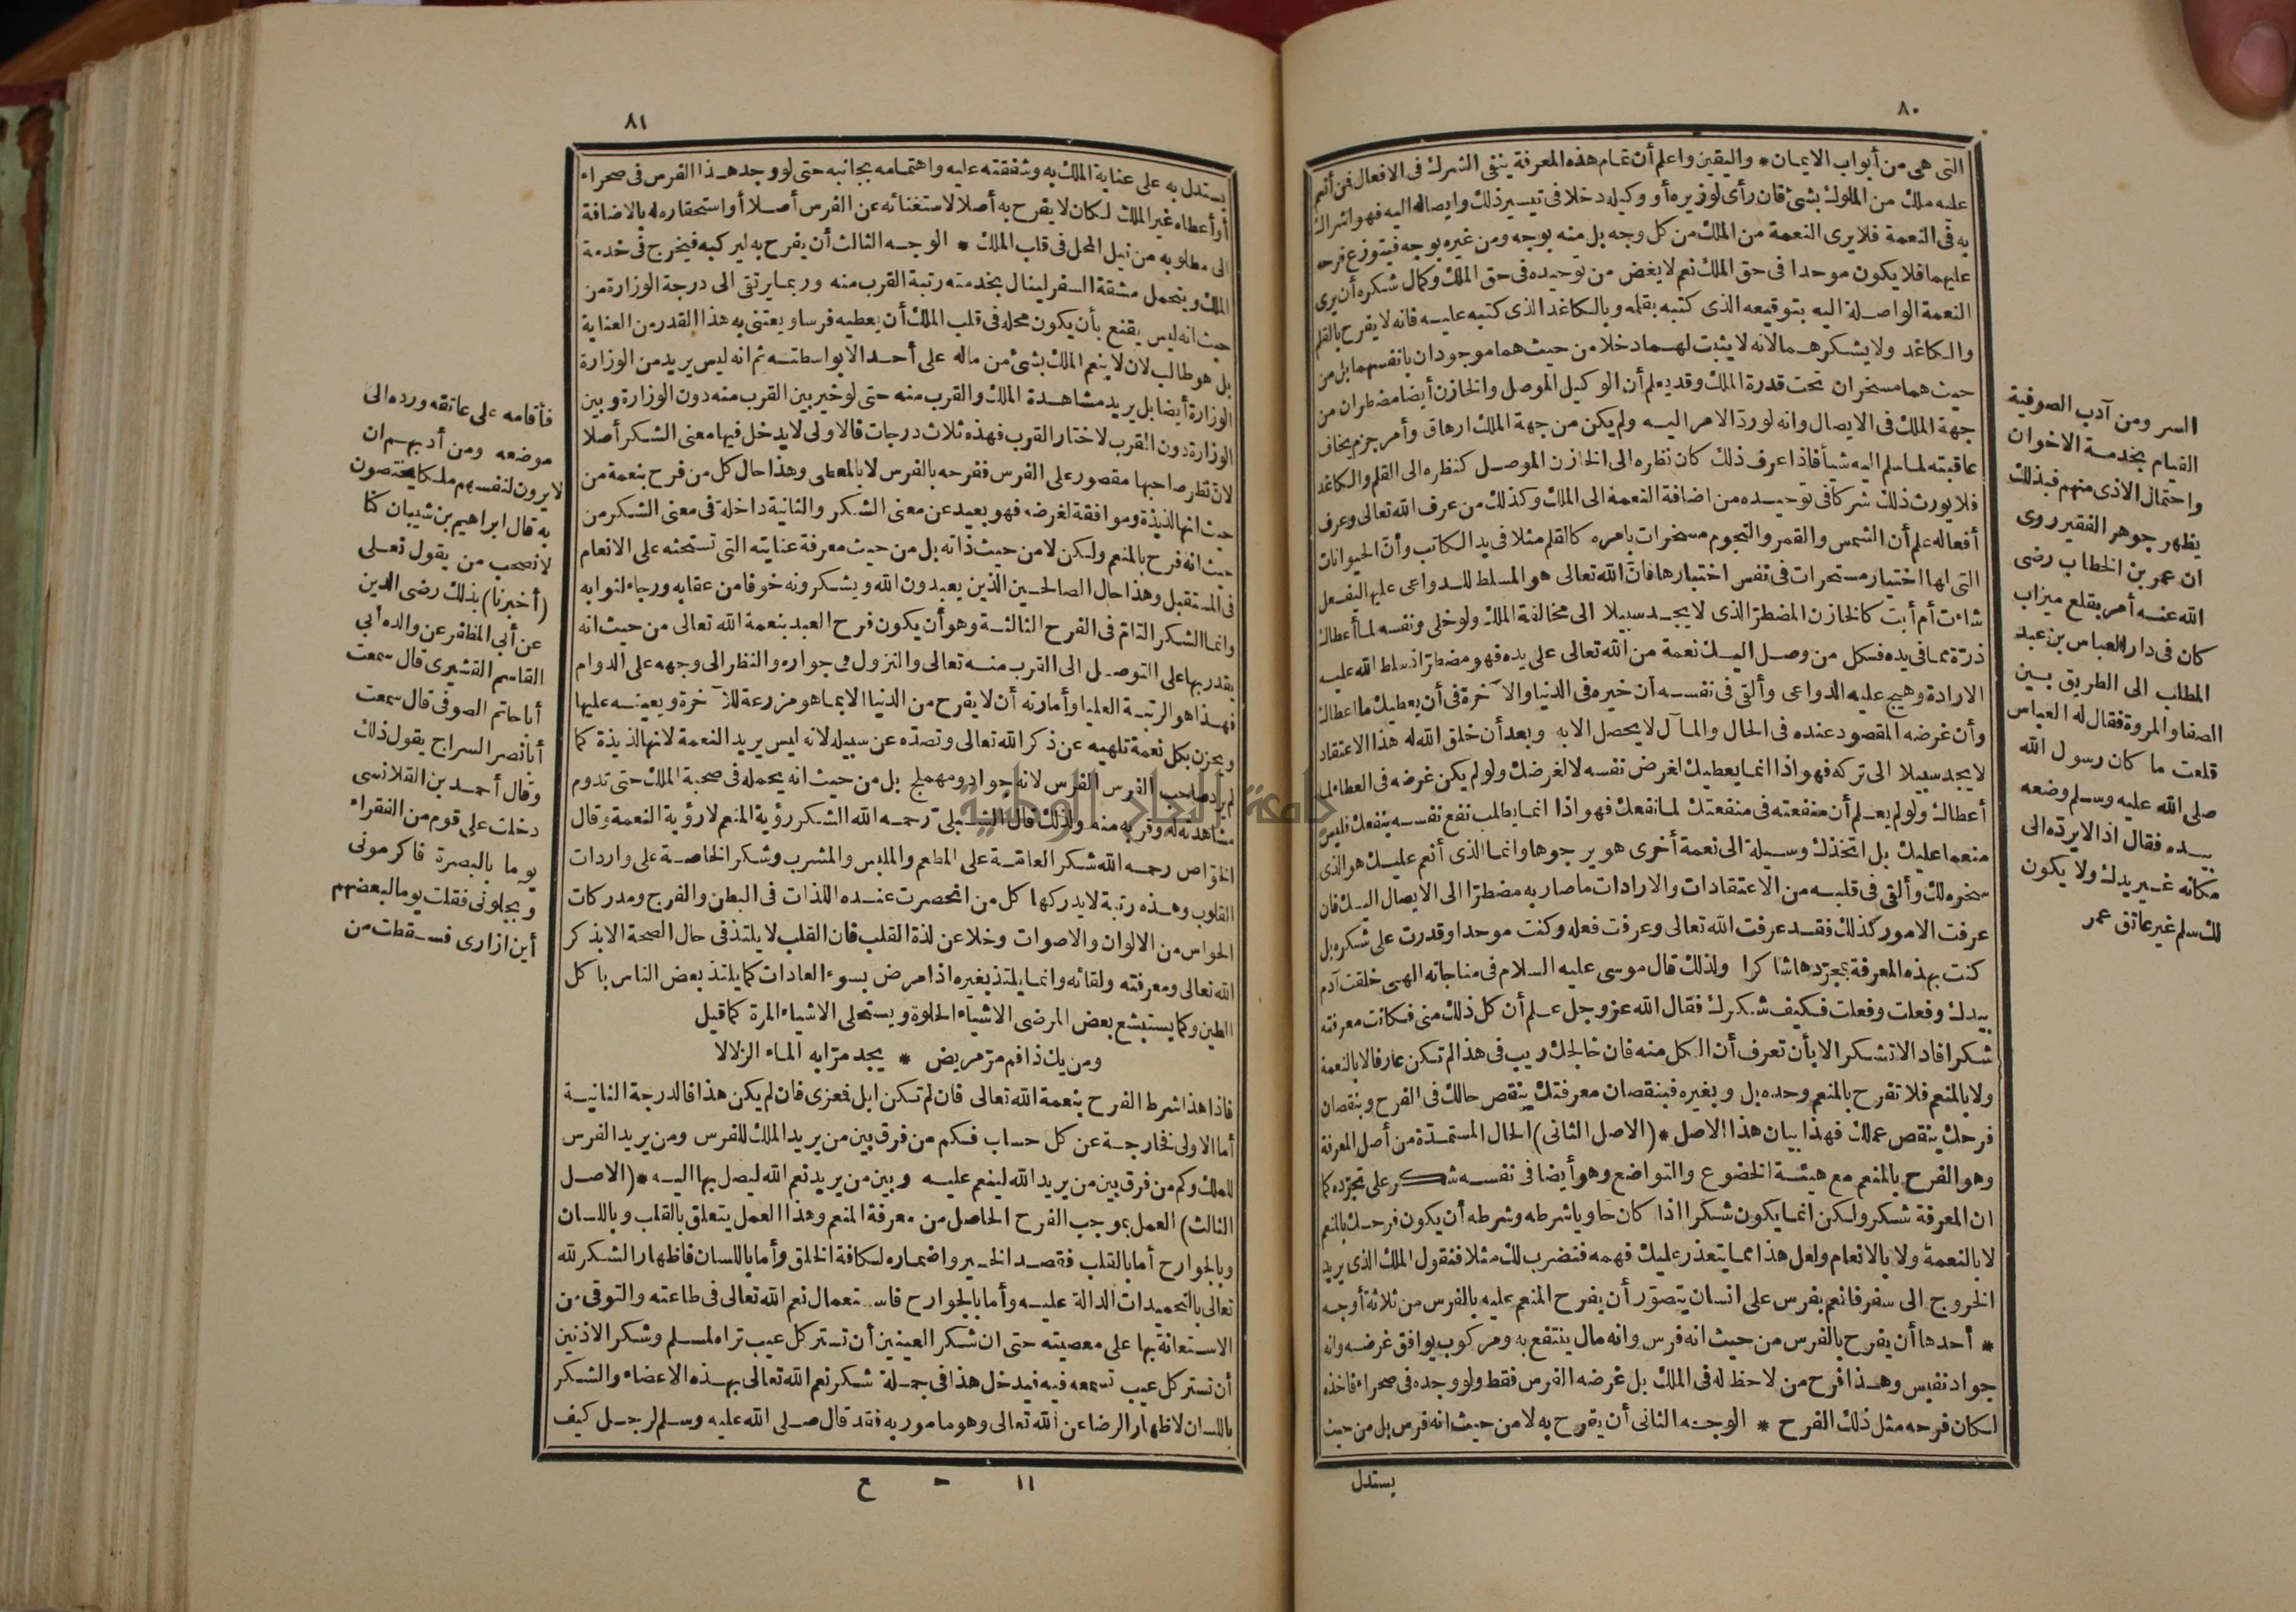 ٨٠
التى هى من أبواب الايمان * واليقين واعلم أن تمام هذه المعرفة ينفى الشرك فى الافعال فن أنعم
عليه ملك من الملوك بشئ فان رأى لوزيره أو وكيله دخلا فى تيسير ذلك وايصاله اليه فهو اشراك
به فى النعمة فلا يرى النعمة من الملك من كل وجه بل منه بوجه ومن غيره بوجه فيتوزع فرحه
عليهما فلا يكون موحدا فى حق الملك نعم لا يغض من توحيده فى حق الملك وكمال شكره أن يرى
النعمة الواصلة اليه بتوقيعه الذى كتبه بقلمه وبالكاغد الذى كتبه عليه فانه لا يفرح بالقلم
والكاغد ولا يشكرهما لانه لا يثبت لهما دخلا من حيث هما موجودان بانفسهما بل من
حيث هما مسخران تحت قدرة الملك وقد يعلم أن الوكيل الموصل والخازن أيضا مضطران من
جهة الملك فى الايصال وانه لو رد الامر اليه ولم يكن من جهة الملك ارهاق وأمر جزم يخاف
عاقبته لما سلم اليه شيأ فاذا عرف ذلك كان نظره الى الخازن الموصل كنظره الى القلم والكاغد
فلا يورث ذلك شركا فى توحيده من اضافة النعمة الى الملك وكذلك من عرف الله تعالى وعرف
أفعاله علم أن الشمس والقمر والنجوم مسخرات بامره كالقلم مثلا فى يد الكاتب وأن الحيوانات
التى لها اختيار مسخرات فى نفس اختيارها فان الله تعالى هو المسلط للدواعى عليها لتفعل
شاءت أم أبت كالخازن المضطر الذى لا يجد سبيلا الى مخالفة الملك ولو خلى ونفسه لما أعطاك
ذرة مما فى يده فكل من وصل اليك نعمة من الله تعالى على يده فهو مضطر اذ سلط الله عليه
الارادة وهيج عليه الدواعى وألقى فى نفسه أن خيره فى الدنيا والآخرة فى أن يعطيك ما اعطاك
وأن غرضه المقصود عنده فى الحال والمآل لا يحصل الا به وبعد أن خلق الله له هذا الاعتقاد
لا يجد سبيلا الى تركه فهو اذا انما يعطيك لغرض نفسه لا لغرضك ولو لم يكن غرضه فى العطاء لما
أعطاك ولو لم يعلم أن منفعته فى منفعتك لما نفعك فهو اذا انما يطلب نفع نفسه بنفعك فليس
منعما عليك بل اتخذك وسيلة الى نعمة أخرى هو يرجوها وانما الذى أنعم عليك هو الذى
سخره لك وألقى فى قلبه من الاعتقادات والارادات ما صار به مضطرا الى الايصال اليك فان
عرفت الامور كذلك فقد عرفت الله تعالى وعرفت فعله وكنت موحدا وقدرت على شكره بل
كنت بهذه المعرفة بمجردها شاكرا ولذلك قال موسى عليه السلام فى مناجاته الهى خلقت آدم
بيدك وفعلت وفعلت فكيف شكرك فقال الله عز وجل علم أن كل ذلك منى فكانت معرفته
شكرا فاذا لا تشكر الا بأن تعرف أن الكل منه فان خالجك ريب فى هذا لم تكن عارفا لا بالنعمة
ولا بالمنعم فلا تفرح بالمنعم وحده بل وبغيره فبنقصان معرفتك ينقص حالك فى الفرح وبنقصان
فرحك ينقص عملك فهذا بيان هذا الاصل * (الاصل الثانى) الحال المستمدة من أصل المعرفة
وهو الفرح بالمنعم مع هيئة الخضوع والتواضع وهو أيضا فى نفسه شكر على تجرده كما
ان المعرفة شكر ولكن انما يكون شكرا اذا كان حاويا شرطه وشرطه أن يكون فرحك بالمنعم
لا بالنعمة ولا بالانعام ولعل هذا مما يتعذر عليك فهمه فنضرب لك مثلا فنقول الملك الذى يريد
الخروج الى سفر فانعم بفرس على انسان يتصور أن يفرح المنعم عليه بالفرس من ثلاثة أوجه
* أحدها أن يفرح بالفرس من حيث انه فرس وانه مال ينتفع به ومركوب يوافق غرضه وانه
جواد نفيس وهذا فرح من لا حظ له فى الملك بل غرضه الفرس فقط ولو وجده فى صحراء فاخذه
لكان فرحه مثل ذلك الفرح * الوجه الثانى أن يفرح به لا من حيث انه فرس بل من حيث
يستدل
السر ومن آدب الصوفية
القيام بخدمة الاخوان
واحتمال الاذى منهم فبذلك
يظهر جوهر الفقير روى
ان عمر بن الخطاب رضى
الله عنه أمر بقلع ميزاب
كان فى دار العباس بن عبد
المطلب الى الطريق بين
الصفا والمروة فقال له العباس
قلعت ما كان رسول الله
صلى الله عليه وسلم وضعه
بيده فقال اذا لا يرده الى
مكانه غير يدك ولا يكون
لك سلم غير عاتق عمر
٨١
يستدل به على عناية الملك به وشفقته عليه واهتمامه بجانبه حتى لو وجد هذا الفرس فى صحراء
أو أعطاه غير الملك لكان لا يفرح به أصلا لاستغنائه عن الفرس أصلا أو استحقاره له بالاضافة
الى مطلوبه من نيل المحل فى قلب الملك * الوجه الثالث أن يفرح به ليركبه فيخرج فى خدمة
الملك ويتحمل مشقة السفر لينال بخدمته رتبة القرب منه وربما يرتقى الى درجة الوزارة من
حيث انه ليس يقنع بأن يكون محله فى قلب الملك أن يعطيه فرسا ويعتنى به هذا القدر من العناية
بل هو طالب لان لا ينعم الملك بشئ من ماله على أحد الا بواسطته ثم انه ليس يريد من الوزارة
الوزارة أيضا بل يريد مشاهدة الملك والقرب منه حتى لو خير بين القرب منه دون الوزارة وبين
الوزارة دون القرب لاختار القرب فهذه ثلاث درجات فالاولى لا يدخل فيها معنى الشكر أصلا
لان نظر صاحبها مقصور على الفرس ففرحه بالفرس لا بالمعطى وهذا حال كل من فرح بنعمة من
حيث انها لذيذة وموافقة لغرضه فهو بعيد عن معنى الشكر والثانية داخلة فى معنى الشكر من
حيث انه فرح بالمنعم ولكن لا من حيث ذاته بل من حيث معرفة عنايته التى تستحثه على الانعام
فى المستقبل وهذا حال الصالحين الذين يعبدون الله ويشكرونه خوفا من عقابه ورجاء لثوابه
وانما الشكر التام فى الفرح الثالث وهو أن يكون فرح العبد بنعمة الله تعالى من حيث انه
يقدر بها على التوصل الى القرب منه تعالى والنزول فى جواره والنظر الى وجهه على الدوام
فهذا هو الرتبة العليا وأمارته أن لا يفرح من الدنيا الا بما هو مزرعة للآخرة ويعينه عليها
ويحزن بكل نعمة تلهيه عن ذكر الله تعالى وتصده عن سبيله لانه ليس يريد النعمة لانها لذيذة كما
لم يرد صاحب الفرس الفرس لانه جواد ومهملج بل من حيث انه يحمله فى صحبة الملك حتى تدوم
مشاهدته له وقربه منه ولذلك قال الشبلى رحمه الله الشكر رؤية المنعم لا رؤية النعمة وقال
الخواص رحمه الله شكر العامة على المطعم والملبس والمشرب وشكر الخاصة على واردات
القلوب وهذه رتبة لا يدركها كل من انحصرت عنده اللذات فى البطن والفرج ومدركات
الحواس من الالوان والاصوات وخلا عن لذة القلب فان القلب لا يلتذ فى حال الصحة الا بذكر
الله تعالى ومعرفته ولقائه وانما يلتذ بغيره اذا مرض بسوء العادات كما يلتذ بعض الناس باكل
الطين وكما يستبشع بعض المرضى الاشياء الحلوة ويستحلى الاشياء المرة كما قيل
ومن يك ذا فم مر مريض * يجد مرا به الماء الزلالا
فاذا هذا شرط الفرح بنعمة الله تعالى فان لم تكن ابل فعزى فان لم يكن هذا فالدرجة الثانية
أما الاولى فخارجة عن كل حساب فكم من فرق بين من يريد الملك للفرس ومن يريد الفرس
للملك وكم من فرق بين من يريد الله لينعم عليه وبين من يريد نعم الله ليصل بها اليه * (الاصل
الثالث) العمل بموجب الفرح الحاصل من معرفة المنعم وهذا العمل يتعلق بالقلب وباللسان
وبالجوارح أما بالقلب فقصد الخير واضماره لكافة الخلق وأما باللسان فاظهار الشكر لله
تعالى بالتحميدات الدالة عليه وأما بالجوارح فاستعمال نعم الله تعالى فى طاعته والتوقى من
الاستعانة بها على معصيته حتى ان شكر العينين أن تستر كل عيب تراه لمسلم وشكر الاذنين
أن تستر كل عيب تسمعه فيه فيدخل هذا فى جملة شكر نعم الله تعالى بهذه الاعضاء والشكر
باللسان لاظهار الرضا عن الله تعالى وهو مامور به فقد قال صلى الله عليه وسلم لرجل كيف
١١ - ع
فأقامه على عاتقه ورده الى
موضعه ومن أدبهم ان
لا يرون لنفسهم ملكا يختصون
به قال ابراهيم بن شيبان كنا
لا نصحب من يقول نعلى
(أخبرنا) بذلك رضى الدين
عن أبى المظفر عن والده أبى
القاسم القشيرى قال سمعت
أبا حاتم الصوفى قال سمعت
أبا نصر السراج يقول ذلك
وقال أحمد بن القلانسى
دخلت على قوم من الفقراء
يوما بالبصرة فاكرمونى
وبجلونى فقلت يوما لبعضهم
أين ازارى فسقطت من
جامعة النجاح الوطنية